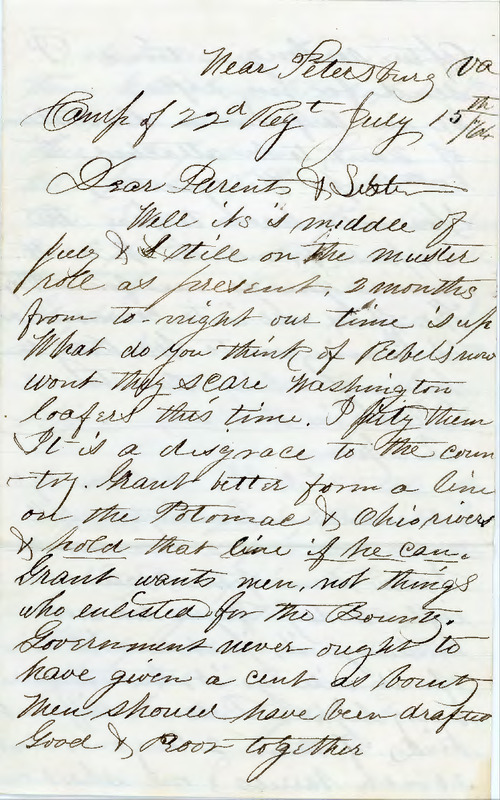 Near Petersburg Va
Camp of 22d Regt July 15th /64
Dear Parents & Sister
Well its is middle of
July & I still on the muster
roll as present. 2 months
from to-night our time is up
What do you think of Rebels now
wont they scare Washington
loafers this time. I pity them
It is a disgrace to the coun
-try. Grant better form a line
on the Potomac & Ohio rivers
& hold that line if he can.
Grant wants men, not things
who enlisted for the Bounty.
Government never ought to
have given a cent as bounty
Men should have been drafted
Good & Poor together